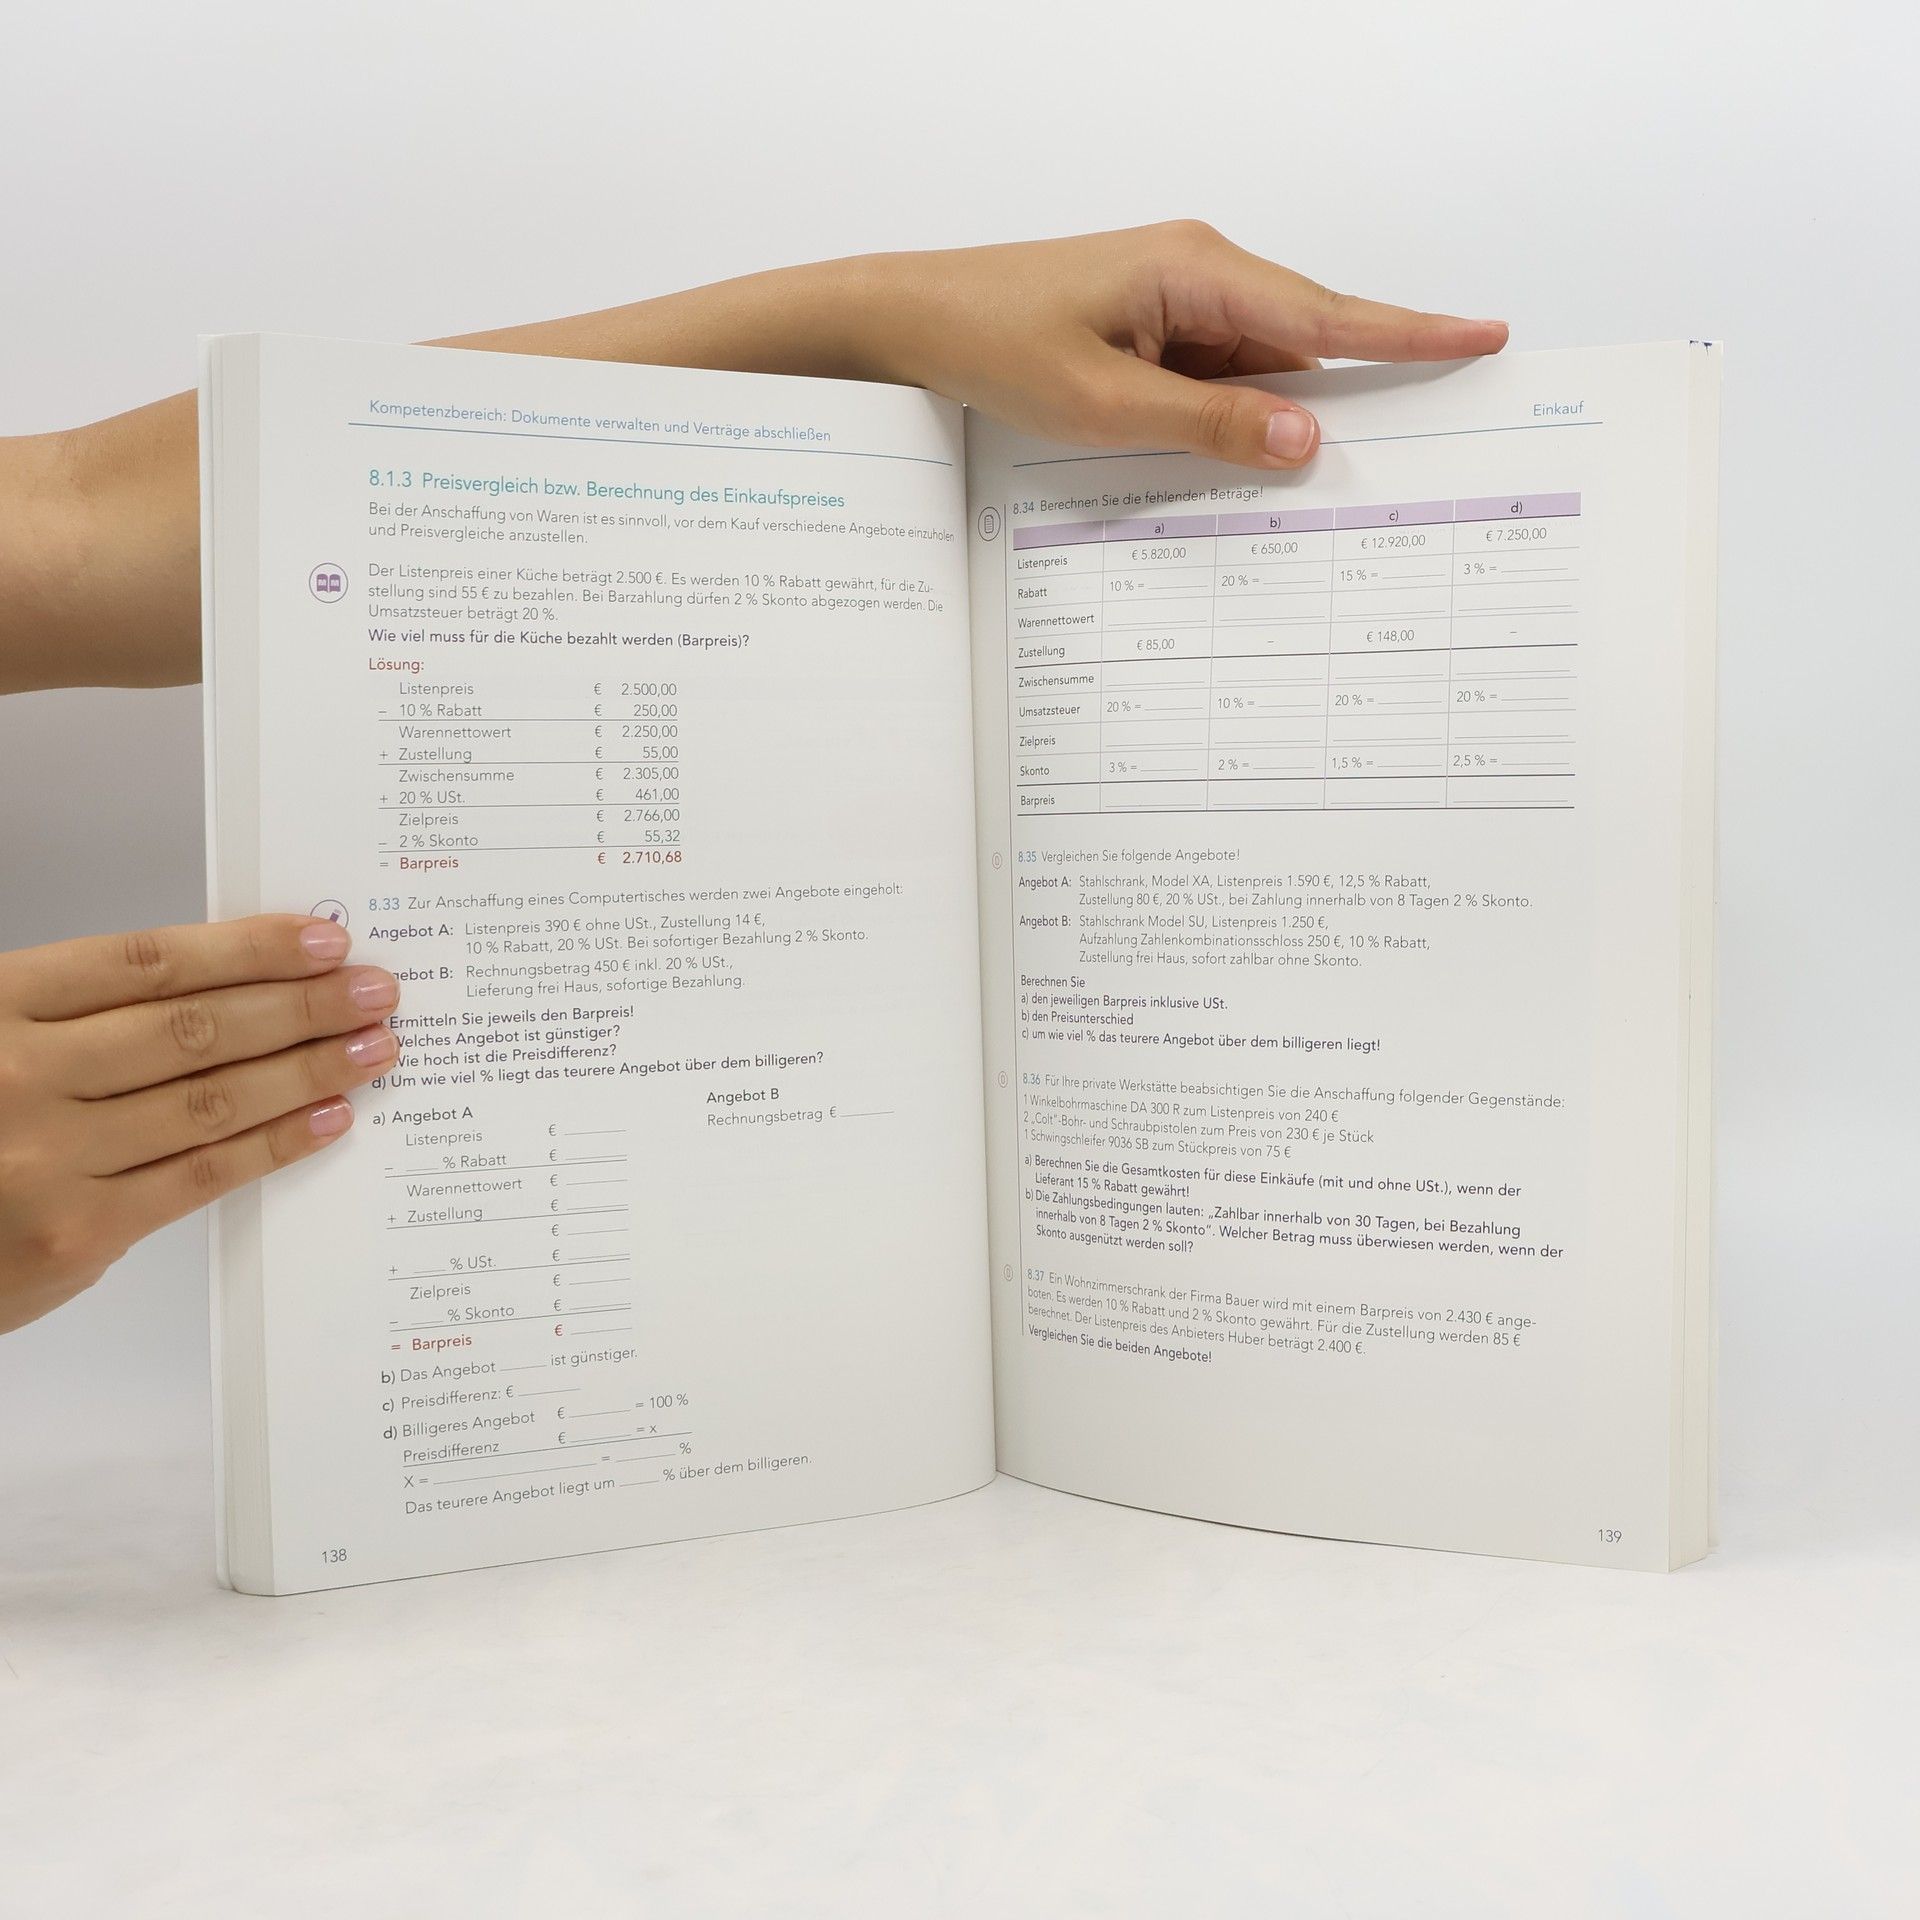 Kompetenzbereich: Dokumente verwalten und Verträge abschließen
8.1.3 Preisvergleich bzw. Berechnung des Einkaufspreises
Bei der Anschaffung von Waren ist es sinnvoll, vor dem Kauf verschiedene Angebote einzuholen
und Preisvergleiche anzustellen.
Der Listenpreis einer Küche beträgt 2.500 €. Es werden 10 % Rabatt gewährt, für die Zu-
stellung sind 55 € zu bezahlen. Bei Barzahlung dürfen 2 % Skonto abgezogen werden. Die
Umsatzsteuer beträgt 20 %.
Wie viel muss für die Küche bezahlt werden (Barpreis)?
Lösung:
Listenpreis € 2.500,00
– 10 % Rabatt € 250,00
Warennettowert € 2.250,00
+ Zustellung € 55,00
Zwischensumme € 2.305,00
+ 20 % USt. € 461,00
Zielpreis € 2.766,00
– 2 % Skonto € 55,32
= Barpreis € 2.710,68
8.33 Zur Anschaffung eines Computertisches werden zwei Angebote eingeholt:
Angebot A: Listenpreis 390 € ohne USt., Zustellung 14 €,
10 % Rabatt, 20 % USt. Bei sofortiger Bezahlung 2 % Skonto.
gebot B: Rechnungsbetrag 450 € inkl. 20 % USt.,
Lieferung frei Haus, sofortige Bezahlung.
Ermitteln Sie jeweils den Barpreis!
Welches Angebot ist günstiger?
Wie hoch ist die Preisdifferenz?
d) Um wie viel % liegt das teurere Angebot über dem billigeren?
a) Angebot A Angebot B
Listenpreis € ____ Rechnungsbetrag € ____
– ____ % Rabatt € ____
Warennettowert € ____
+ Zustellung € ____
€ ____
+ ____ % USt. € ____
Zielpreis € ____
– ____ % Skonto € ____
= Barpreis € ____
b) Das Angebot ____ ist günstiger.
c) Preisdifferenz: € ____
d) Billigeres Angebot € ____ = 100 %
Preisdifferenz € ____ = x
X = ____ = ____ %
Das teurere Angebot liegt um ____ % über dem billigeren.
138
Einkauf
8.34 Berechnen Sie die fehlenden Beträge!
a) b) c) d)
Listenpreis € 5.820,00 € 650,00 € 12.920,00 € 7.250,00
Rabatt 10 % = ____ 20 % = ____ 15 % = ____ 3 % = ____
Warennettowert ____ ____ ____ ____
Zustellung € 85,00 – € 148,00 –
Zwischensumme ____ ____ ____ ____
Umsatzsteuer 20 % = ____ 10 % = ____ 20 % = ____ 20 % = ____
Zielpreis ____ ____ ____ ____
Skonto 3 % = ____ 2 % = ____ 1,5 % = ____ 2,5 % = ____
Barpreis ____ ____ ____ ____
8.35 Vergleichen Sie folgende Angebote!
Angebot A: Stahlschrank, Model XA, Listenpreis 1.590 €, 12,5 % Rabatt,
Zustellung 80 €, 20 % USt., bei Zahlung innerhalb von 8 Tagen 2 % Skonto.
Angebot B: Stahlschrank Model SU, Listenpreis 1.250 €,
Aufzahlung Zahlenkombinationsschloss 250 €, 10 % Rabatt,
Zustellung frei Haus, sofort zahlbar ohne Skonto.
Berechnen Sie
a) den jeweiligen Barpreis inklusive USt.
b) den Preisunterschied
c) um wie viel % das teurere Angebot über dem billigeren liegt!
8.36 Für Ihre private Werkstätte beabsichtigen Sie die Anschaffung folgender Gegenstände:
1 Winkelbohrmaschine DA 300 R zum Listenpreis von 240 €
2 „Colt“-Bohr- und Schraubpistolen zum Preis von 230 € je Stück
1 Schwingschleifer 9036 SB zum Stückpreis von 75 €
a) Berechnen Sie die Gesamtkosten für diese Einkäufe (mit und ohne USt.), wenn der
Lieferant 15 % Rabatt gewährt!
b) Die Zahlungsbedingungen lauten: „Zahlbar innerhalb von 30 Tagen, bei Bezahlung
innerhalb von 8 Tagen 2 % Skonto“. Welcher Betrag muss überwiesen werden, wenn der
Skonto ausgenützt werden soll?
8.37 Ein Wohnzimmerschrank der Firma Bauer wird mit einem Barpreis von 2.430 € ange-
boten. Es werden 10 % Rabatt und 2 % Skonto gewährt. Für die Zustellung werden 85 €
berechnet. Der Listenpreis des Anbieters Huber beträgt 2.400 €.
Vergleichen Sie die beiden Angebote!
139